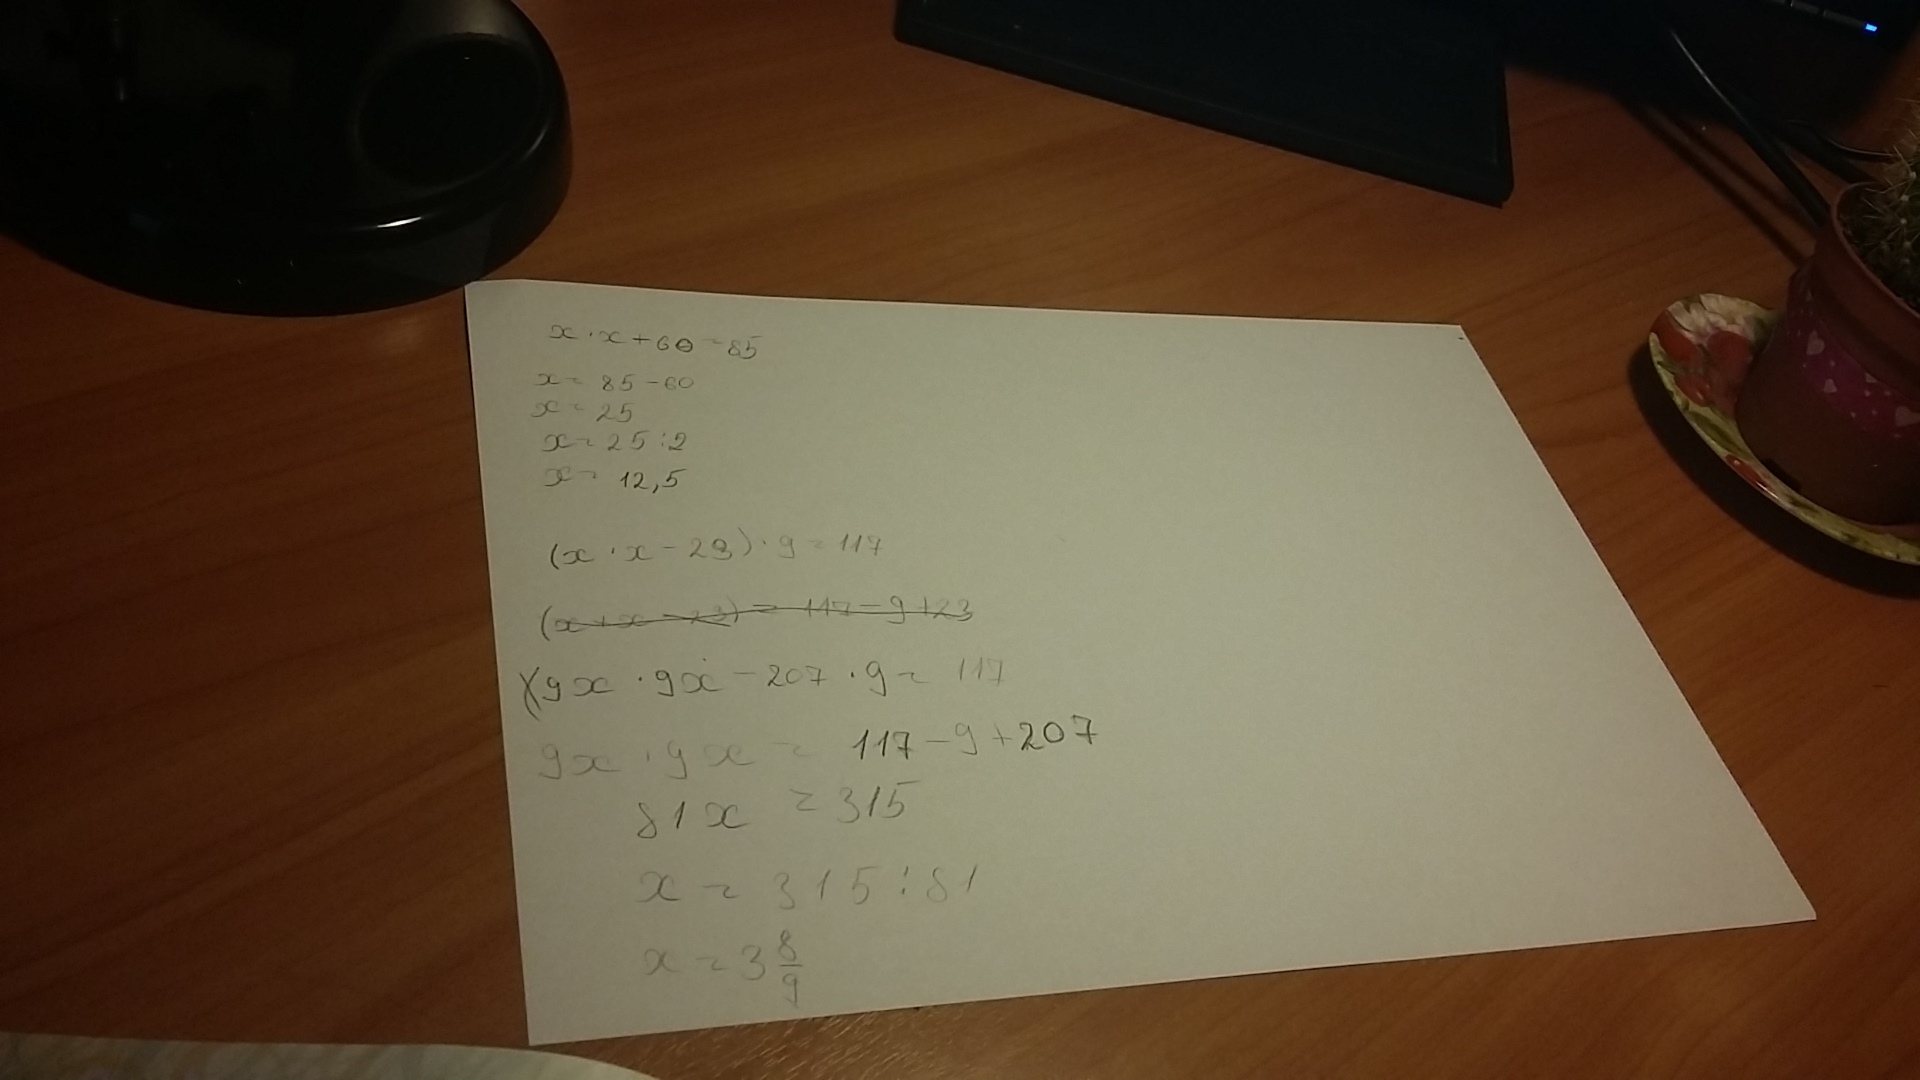 x · x + 60 = 85
x = 85 - 60
x = 25
x = 25 : 2
x = 12,5
(x · x - 23) · 9 = 117
(x + x - 23) = 117 - 9 + 23
(9x · 9x - 207 · 9 = 117
9x · 9x = 117 - 9 + 207
81x = 315
x = 315 : 81
x = 3 8/9